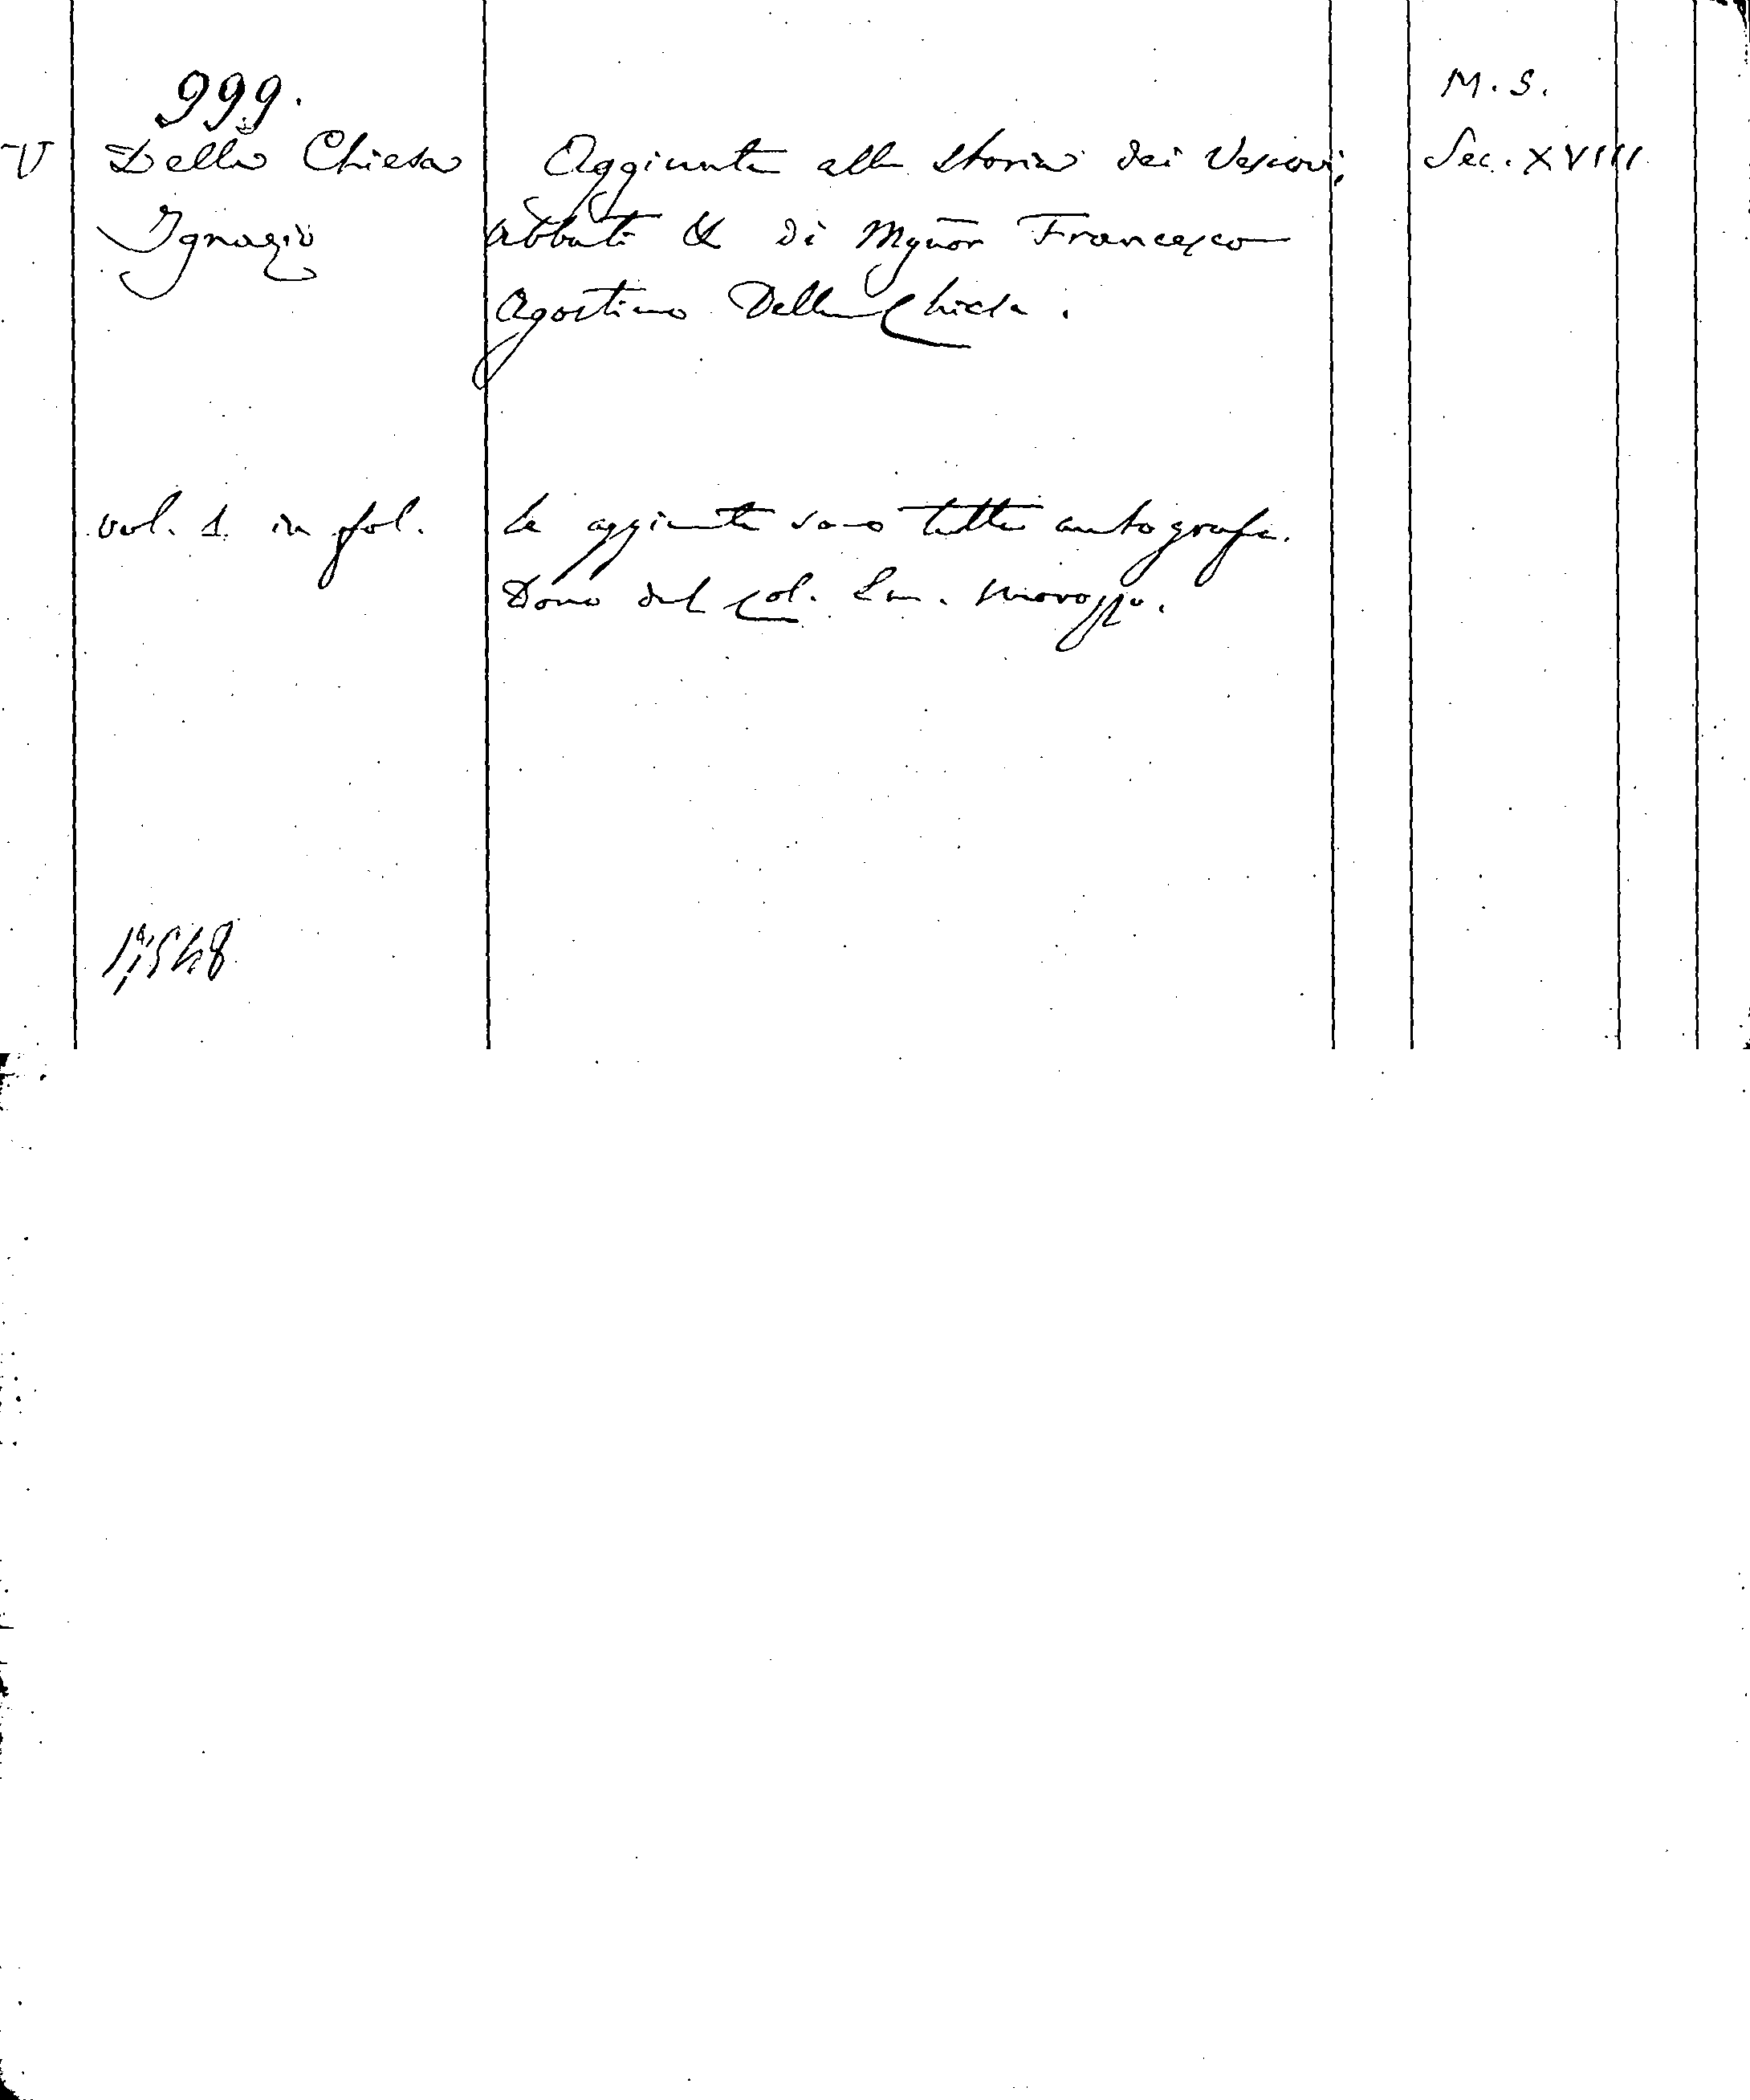 999.
M. S.
V Della Chiesa
Ignazio
Aggiunte alla storia dei Vescovi,
Abbati & di Mgnor Francesco
Agostino Della Chiesa.
Sec. XVIII
vol. 1. in fol.
Le aggiunte sono tutte autografe.
Dono del Col. Em. Morozzo.